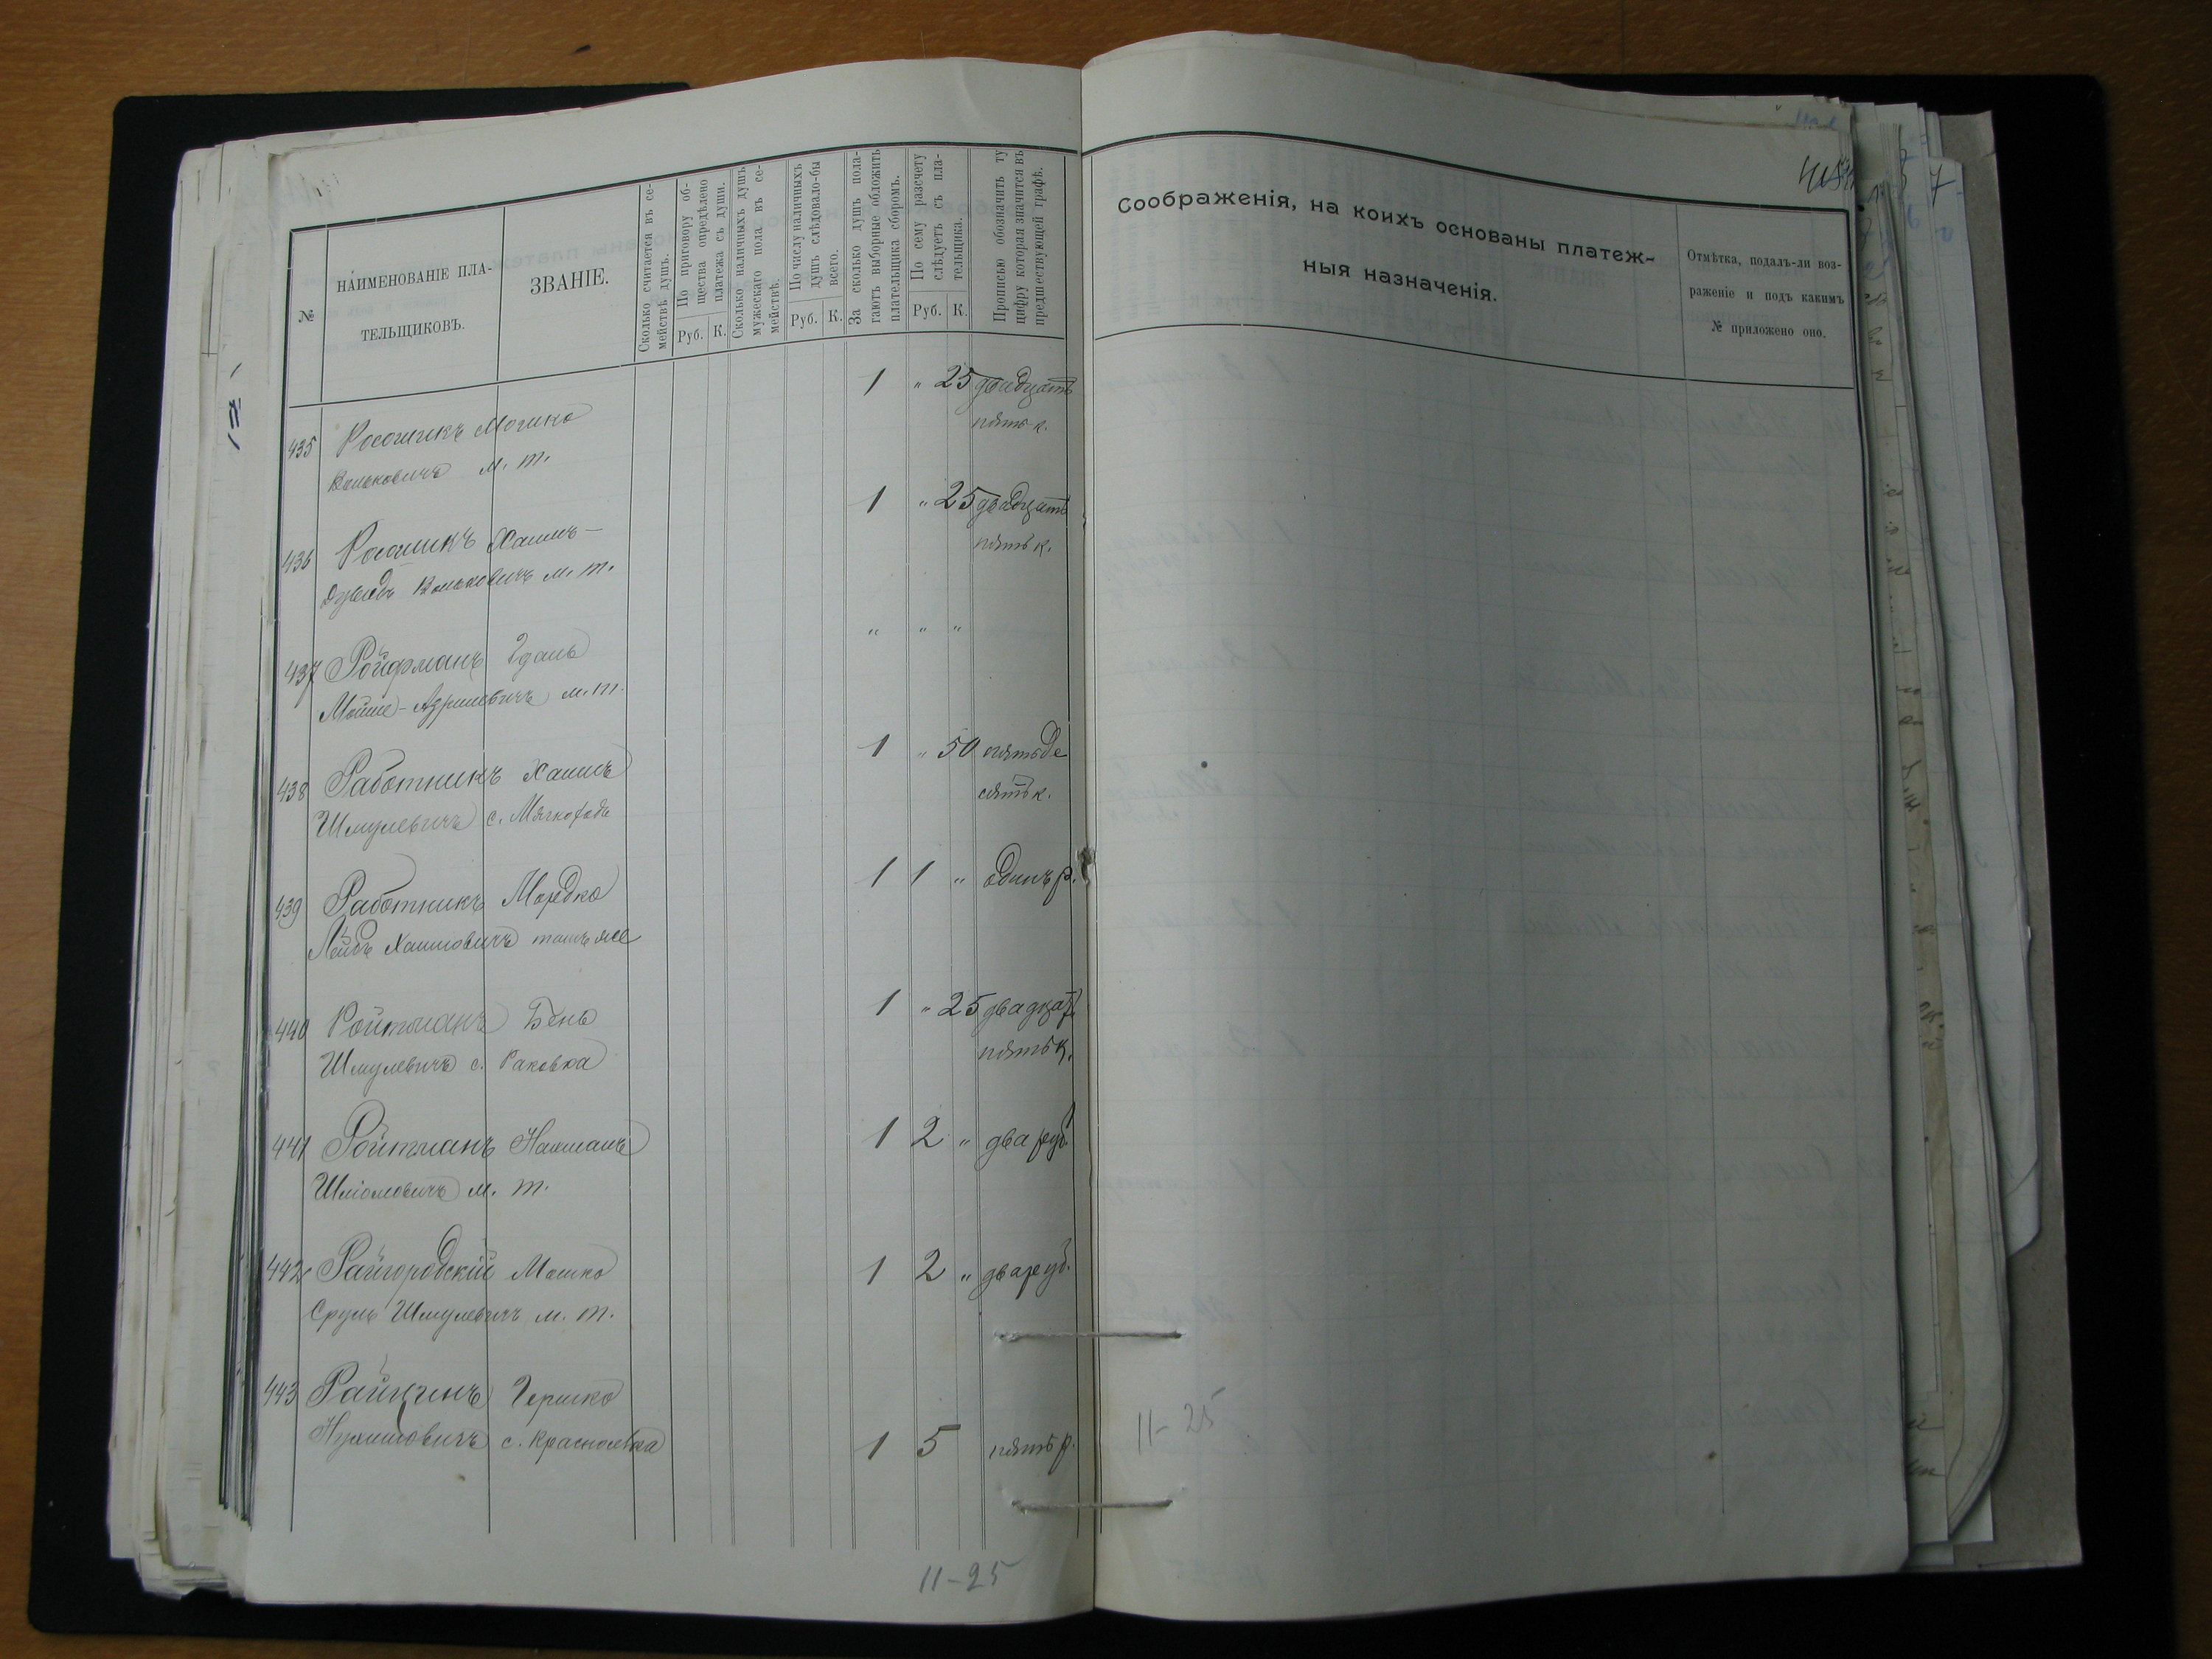 №
НАИМЕНОВАНІЕ ПЛА-
ТЕЛЬЩИКОВЪ.
ЗВАНІЕ.
Сколько считается въ се-
мействѣ душъ.
По приговору об-
щества опредѣлено
платежа съ души.
Руб. К.
Сколько наличныхъ душъ
мужескаго пола въ се-
мействѣ.
По числу наличныхъ
душъ слѣдовало-бы
всего.
Руб. К.
За сколько душъ пола-
гаютъ выборные обложить
плательщика сборомъ.
По сему разсчету
слѣдуетъ съ пла-
тельщика.
Руб. К.
Прописью обозначить ту
цифру которая значится въ
предшествующей графѣ.
435 Росошикъ Мошко 1 " 25 двадцать
Вольковичъ м. т. пять к.
436 Росошикъ Хаимъ- 1 " 25 двадцать
Дувидъ Вольковичъ м. т. пять к.
437 Ройфманъ Эдаль " " "
Мойше-Азрилевичъ м. т.
438 Работникъ Хаимъ 1 " 50 пятьде
Шмулевичъ с. Мягкоходъ сятъ к.
439 Работникъ Мордко 1 1 " одинъ р.
Лейбъ Хаимовичъ тамъ же
440 Ройтманъ Бень 1 " 25 двадцать
Шмулевичъ с. Раковка пять к.
441 Ройтманъ Нахманъ 1 2 " два руб.
Шліомовичъ м. т.
442 Райгородскій Мошко 1 2 " два руб.
Сруль Шмулевичъ м. т.
443 Райцинъ Гершко
Нухимовичъ с. Красноселка 1 5 пять р.
11-25
Соображенія, на коихъ основаны платеж-
ныя назначенія.
Отмѣтка, подалъ-ли воз-
раженіе и подъ какимъ
№ приложено оно.
11-25